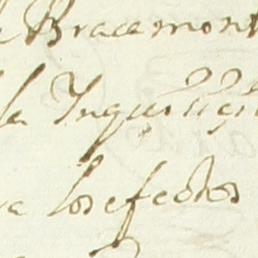 Bracamont
la Inquisi
a los efectos